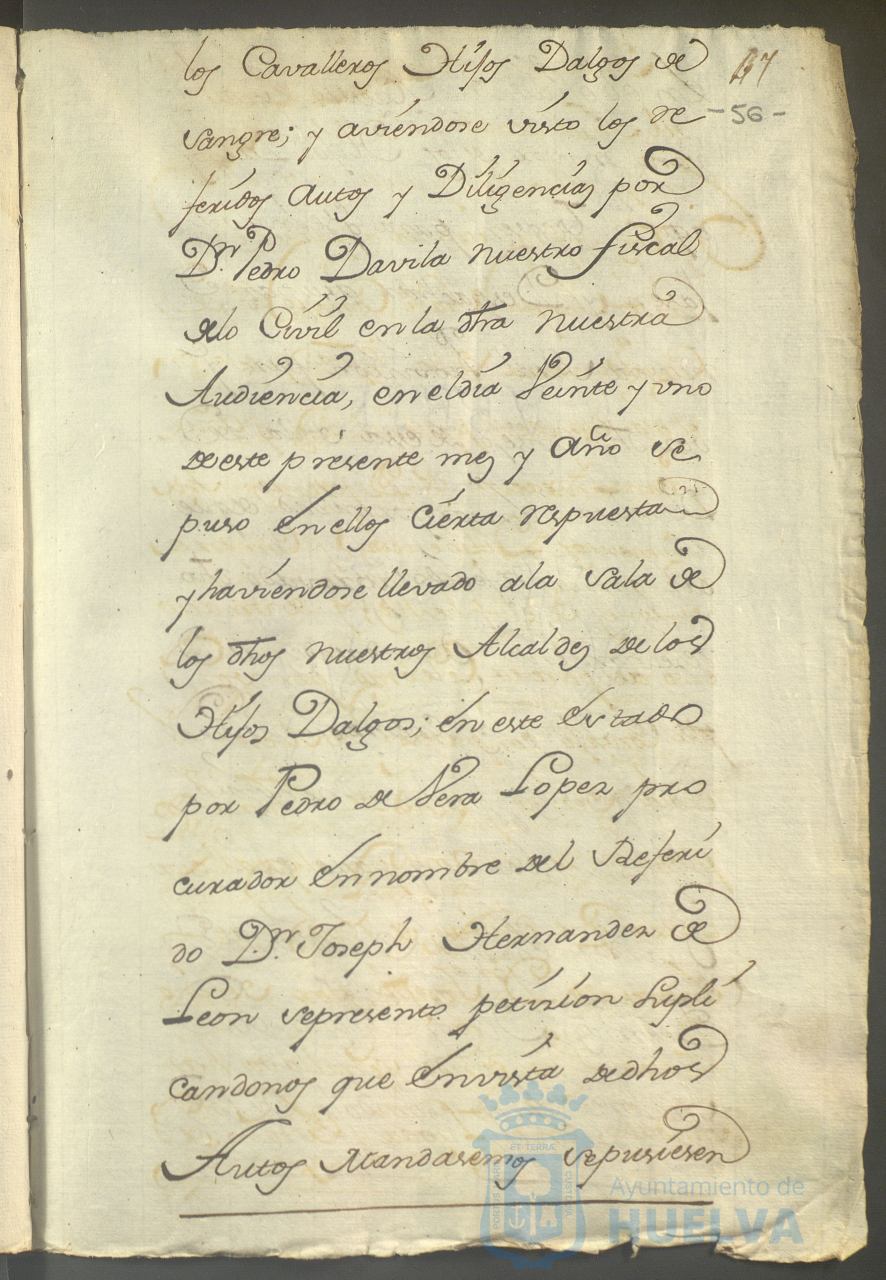 los Cavalleros Hijos Dalgos de
-56-
sangre; y aviendose visto los re
feridos autos y Diligencias por
Dn. Pedro Davila nuestro fiscal
delo Civil en la dha nuestra
Audiencia, en el dia Veinte y uno
de este presente mes y año se
puso en ellos cierta respuesta
y haviendose llevado ala Sala de
los dhos nuestros Alcaldes de los
Hijos Dalgos; en este estado
por Pedro de Vera Lopez pro
curador en nombre del Referi
do Dn. Joseph Hernandez de
Leon se presento petizion supli
candonos que en vista de dhos
Autos Mandasemos se pusiesen
Ayuntamiento de
HUELVA